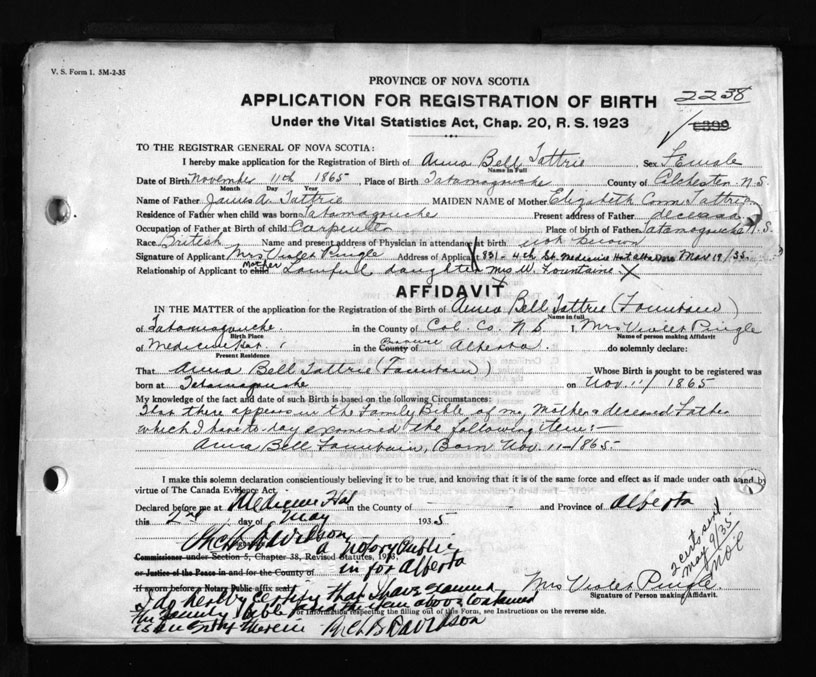 V. S. Form 1. 5M-2-35
PROVINCE OF NOVA SCOTIA
APPLICATION FOR REGISTRATION OF BIRTH 2238
Under the Vital Statistics Act, Chap. 20, R. S. 1923
TO THE REGISTRAR GENERAL OF NOVA SCOTIA:
I hereby make application for the Registration of Birth of Anna Bell Tattrie Sex Female
Name in Full
Date of Birth November 11th 1865, Place of Birth Tatamagouche County of Colchester N.S.
Month Day Year
Name of Father James A. Tattrie MAIDEN NAME of Mother Elizabeth Conn Tattrie
Residence of Father when child was born Tatamagouche Present address of Father deceased
Occupation of Father at Birth of child Carpenter Place of birth of Father Tatamagouche N.S.
Race British Name and present address of Physician in attendance at birth not known
Signature of Applicant Mrs Violet Pringle Address of Applicant 891- 4th St. Medicine Hat Alta Date Mar 19/35
Relationship of Applicant to child Mother Lawful daughter Mrs W. Fountaine X
AFFIDAVIT
IN THE MATTER of the application for the Registration of the Birth of Anna Bell Tattrie (Fountain)
Name in full
of Tatamagouche in the County of Col. Co. N.S. I, Mrs Violet Pringle
Birth Place Name of person making Affidavit
of Medicine Hat in the County of Province Alberta do solemnly declare:
Present Residence
That Anna Bell Tattrie (Fountain) Whose Birth is sought to be registered was
born at Tatamagouche on Nov. 11/ 1865
My knowledge of the fact and date of such Birth is based on the following Circumstances:
That there appears in the Family Bible of my Mother & deceased Father
which I have to-day examined the following item:-
Anna Bell Fountain, Born Nov. 11-1865
I make this solemn declaration conscientiously believing it to be true, and knowing that it is of the same force and effect as if made under oath and by
virtue of The Canada Evidence Act.
Declared before me at Medicine Hat in the County of - and Province of Alberta
this 2nd day of May 1935
Davidson
a Notary Public
Commissioner under Section 5, Chapter 38, Revised Statutes, 1923,
or Justice of the Peace in and for the County of in for Alberta
2 certs sent
May 9/35
If sworn before a Notary Public affix seal
Mrs Violet Pringle
Signature of Person making Affidavit.
I do hereby certify that I have examined
the family Bible and the item above contained
For information respecting the filling out of this Form, see Instructions on the reverse side.
is an entry therein Davidson